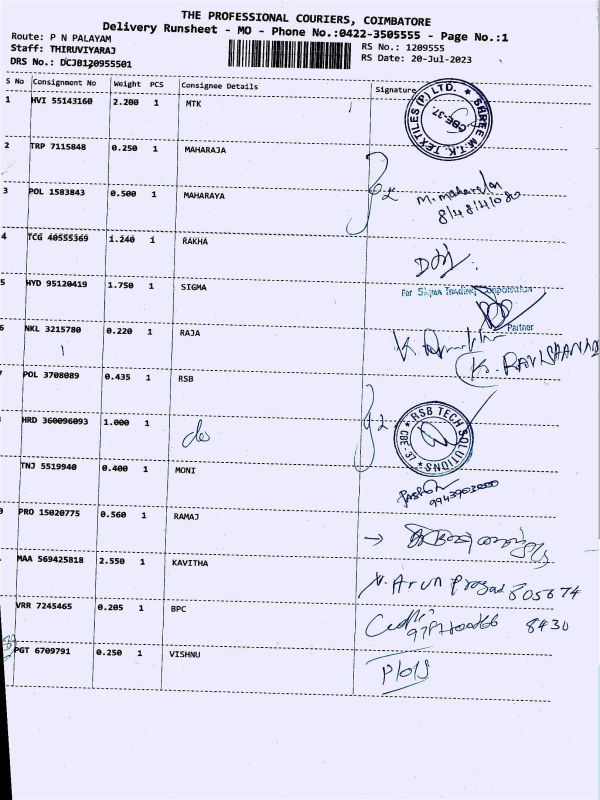 THE PROFESSIONAL COURIERS, COIMBATORE
Delivery Runsheet - MO - Phone No.:0422-3505555 - Page No.:1
Route: P N PALAYAM
RS No.: 1209555
Staff: THIRUVIYARAJ
RS Date: 20-Jul-2023
DRS No.: DCJB120955501
S No Consignment No Weight PCS Consignee Details Signature
1 HVI 55143160 2.200 1 MTK
SHREE M.T.K. TEXTILES (P) LTD. CBE-37.
2 TRP 7115848 0.250 1 MAHARAJA
3 POL 1583843 0.500 1 MAHARAYA
4 TCG 40555369 1.240 1 RAKHA
5 HYD 95120419 1.750 1 SIGMA
For SIGMA TRADING CORPORATION
Partner
6 NKL 3215780 0.220 1 RAJA
7 POL 3708089 0.435 1 RSB
RSB TECH SOLUTIONS CBE-37
HRD 360096093 1.000 1
TNJ 5519940 0.400 1 MONI
PRO 15020775 0.560 1 RAMAJ
MAA 569425818 2.550 1 KAVITHA
Arun Prasad 805674
VRR 7245465 0.205 1 BPC
8430
PGT 6709791 0.250 1 VISHNU